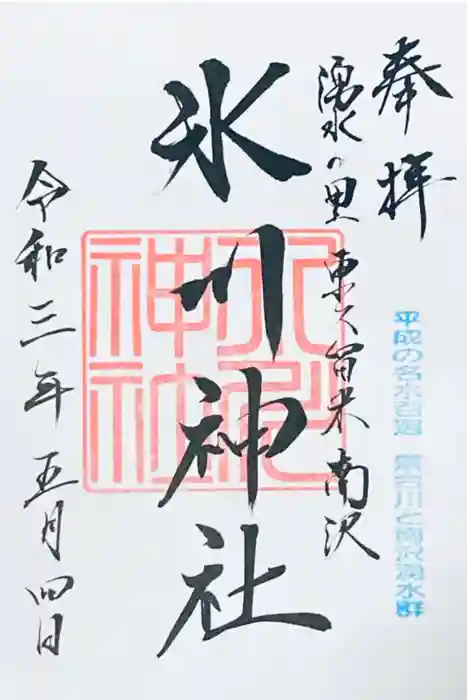 奉拝
平成の名水百選 落合川と南沢湧水群
湧水の里 東久留米南沢
氷川神社
氷川神社
令和三年五月四日